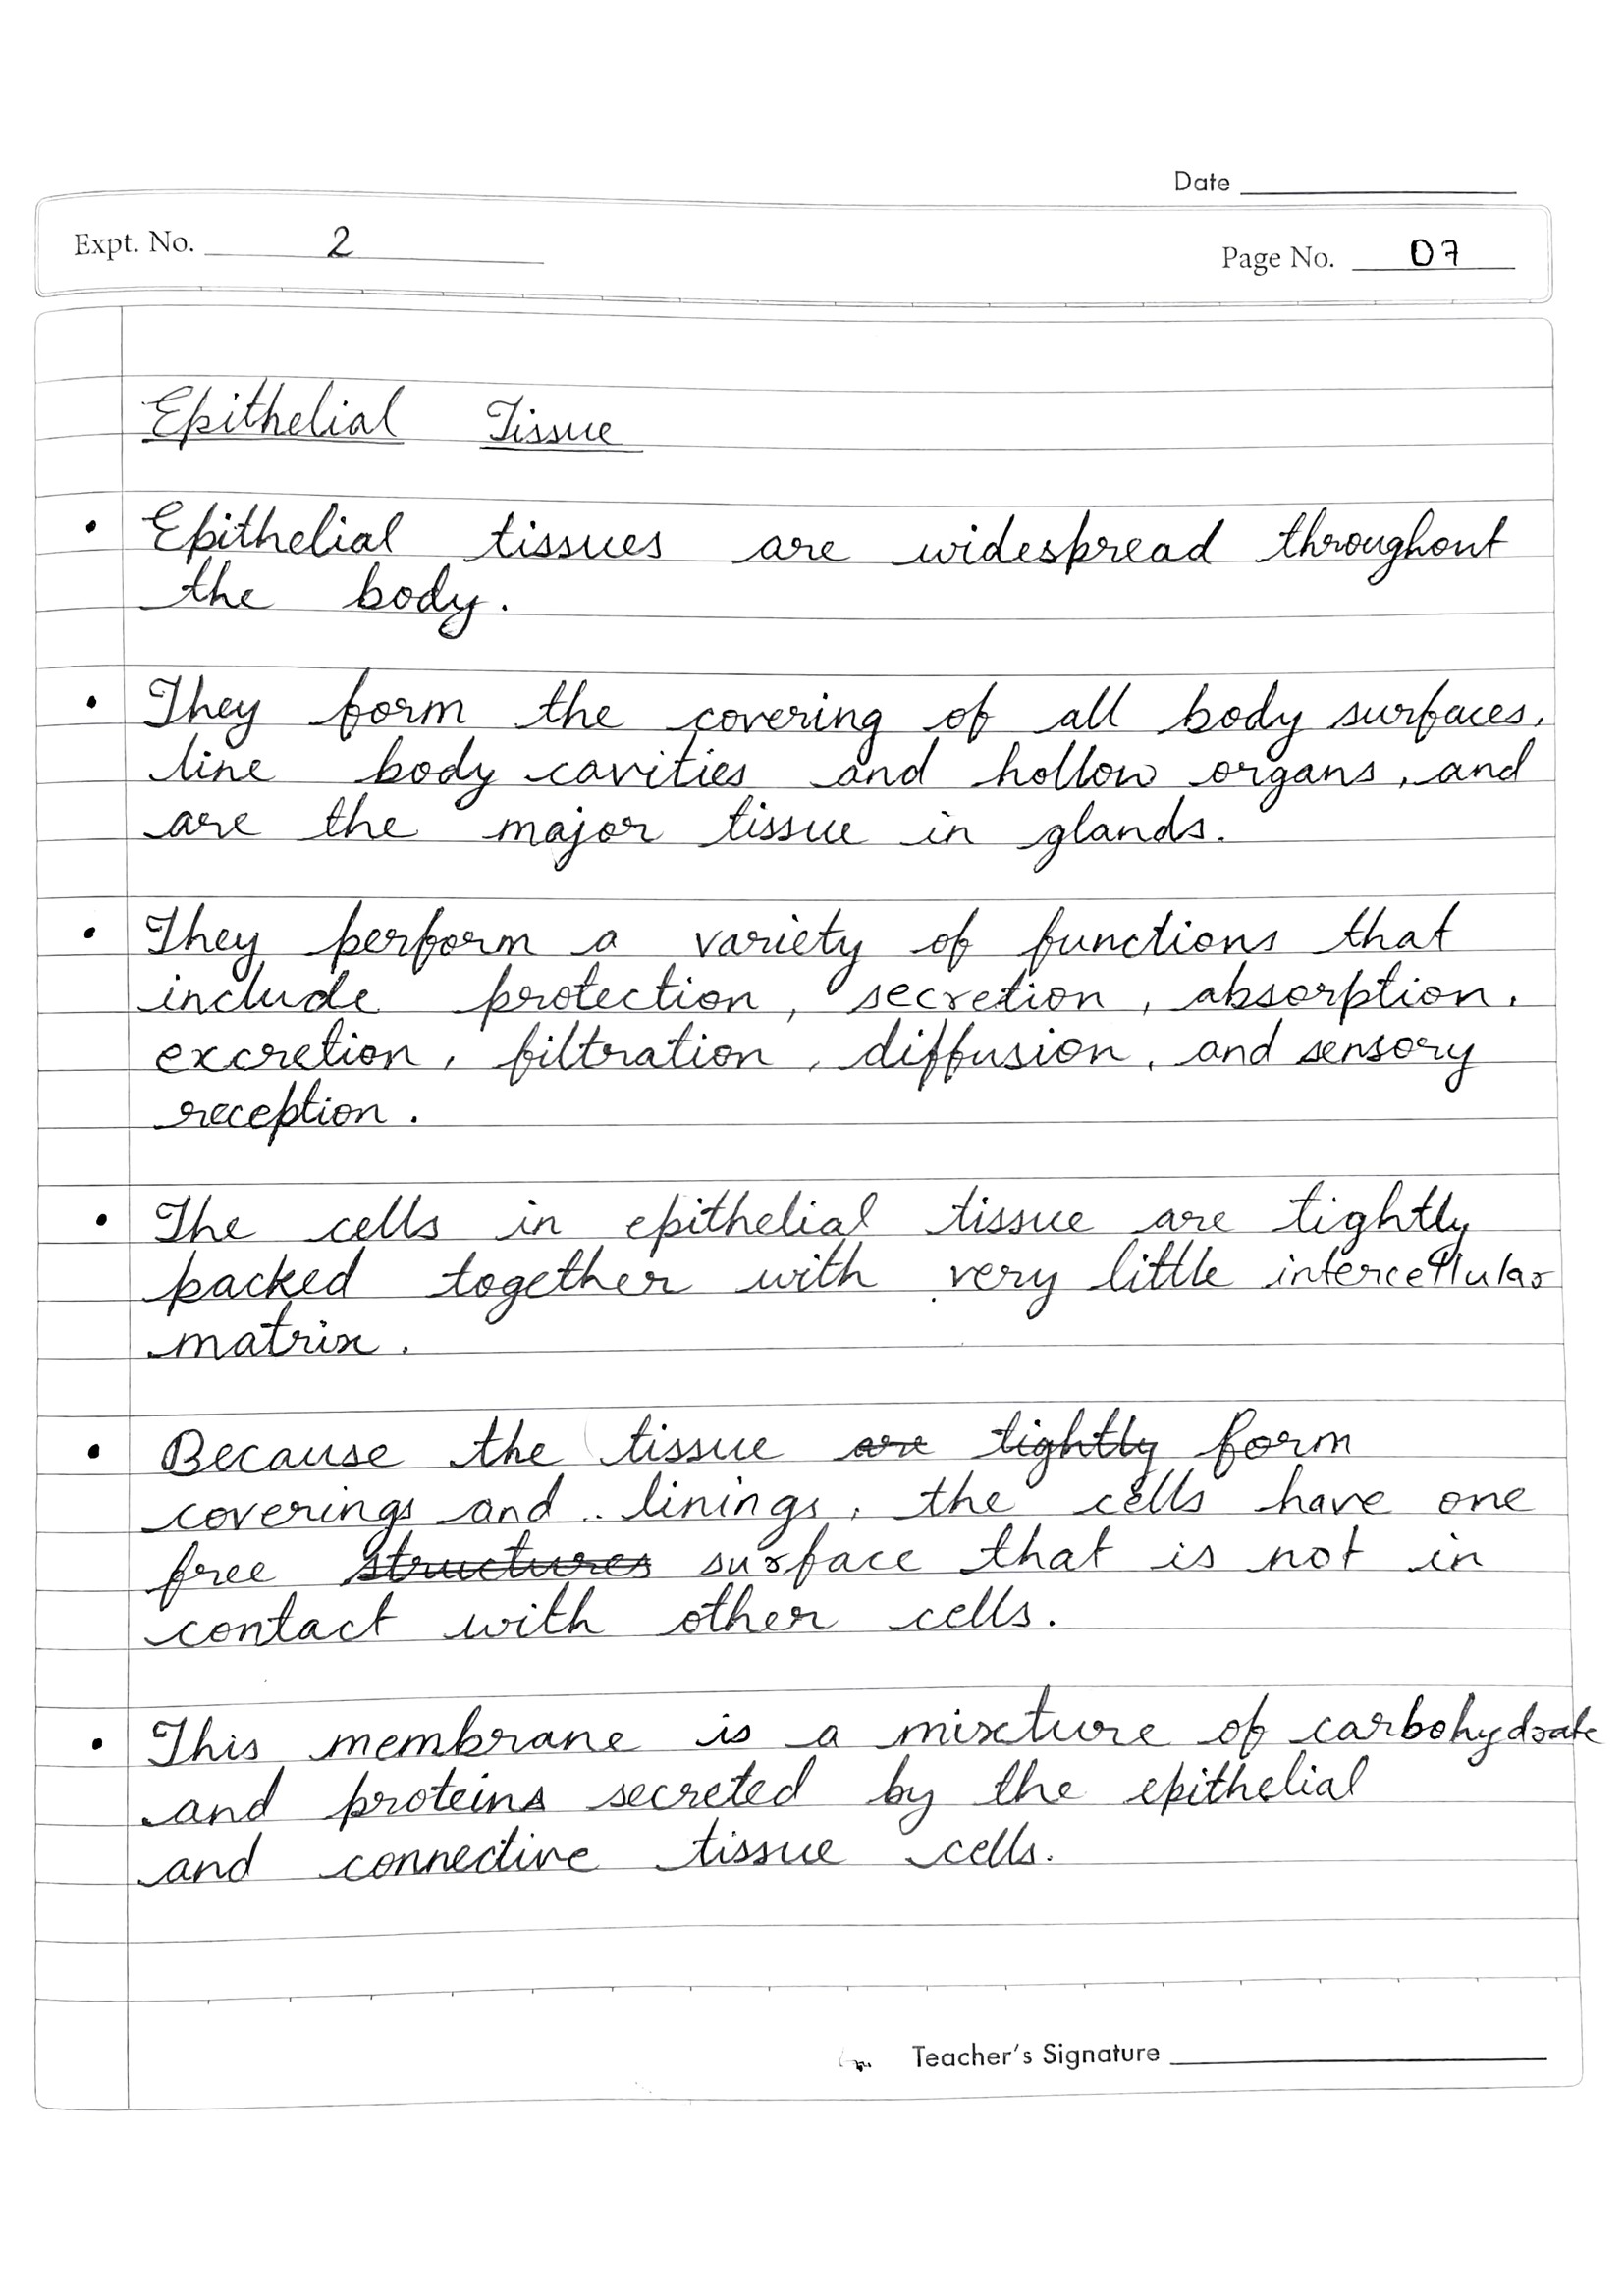 Date
Expt. No. 2
Page No. 07
Epithelial Tissue
• Epithelial tissues are widespread throughout
the body.
• They form the covering of all body surfaces,
line body cavities and hollow organs, and
are the major tissue in glands.
• They perform a variety of functions that
include protection, secretion, absorption,
excretion, filtration, diffusion, and sensory
reception.
• The cells in epithelial tissue are tightly
packed together with very little intercellular
matrix.
• Because the tissue are tightly form
coverings and linings, the cells have one
free structures surface that is not in
contact with other cells.
• This membrane is a mixture of carbohydrate
and proteins secreted by the epithelial
and connective tissue cells.
Teacher's Signature